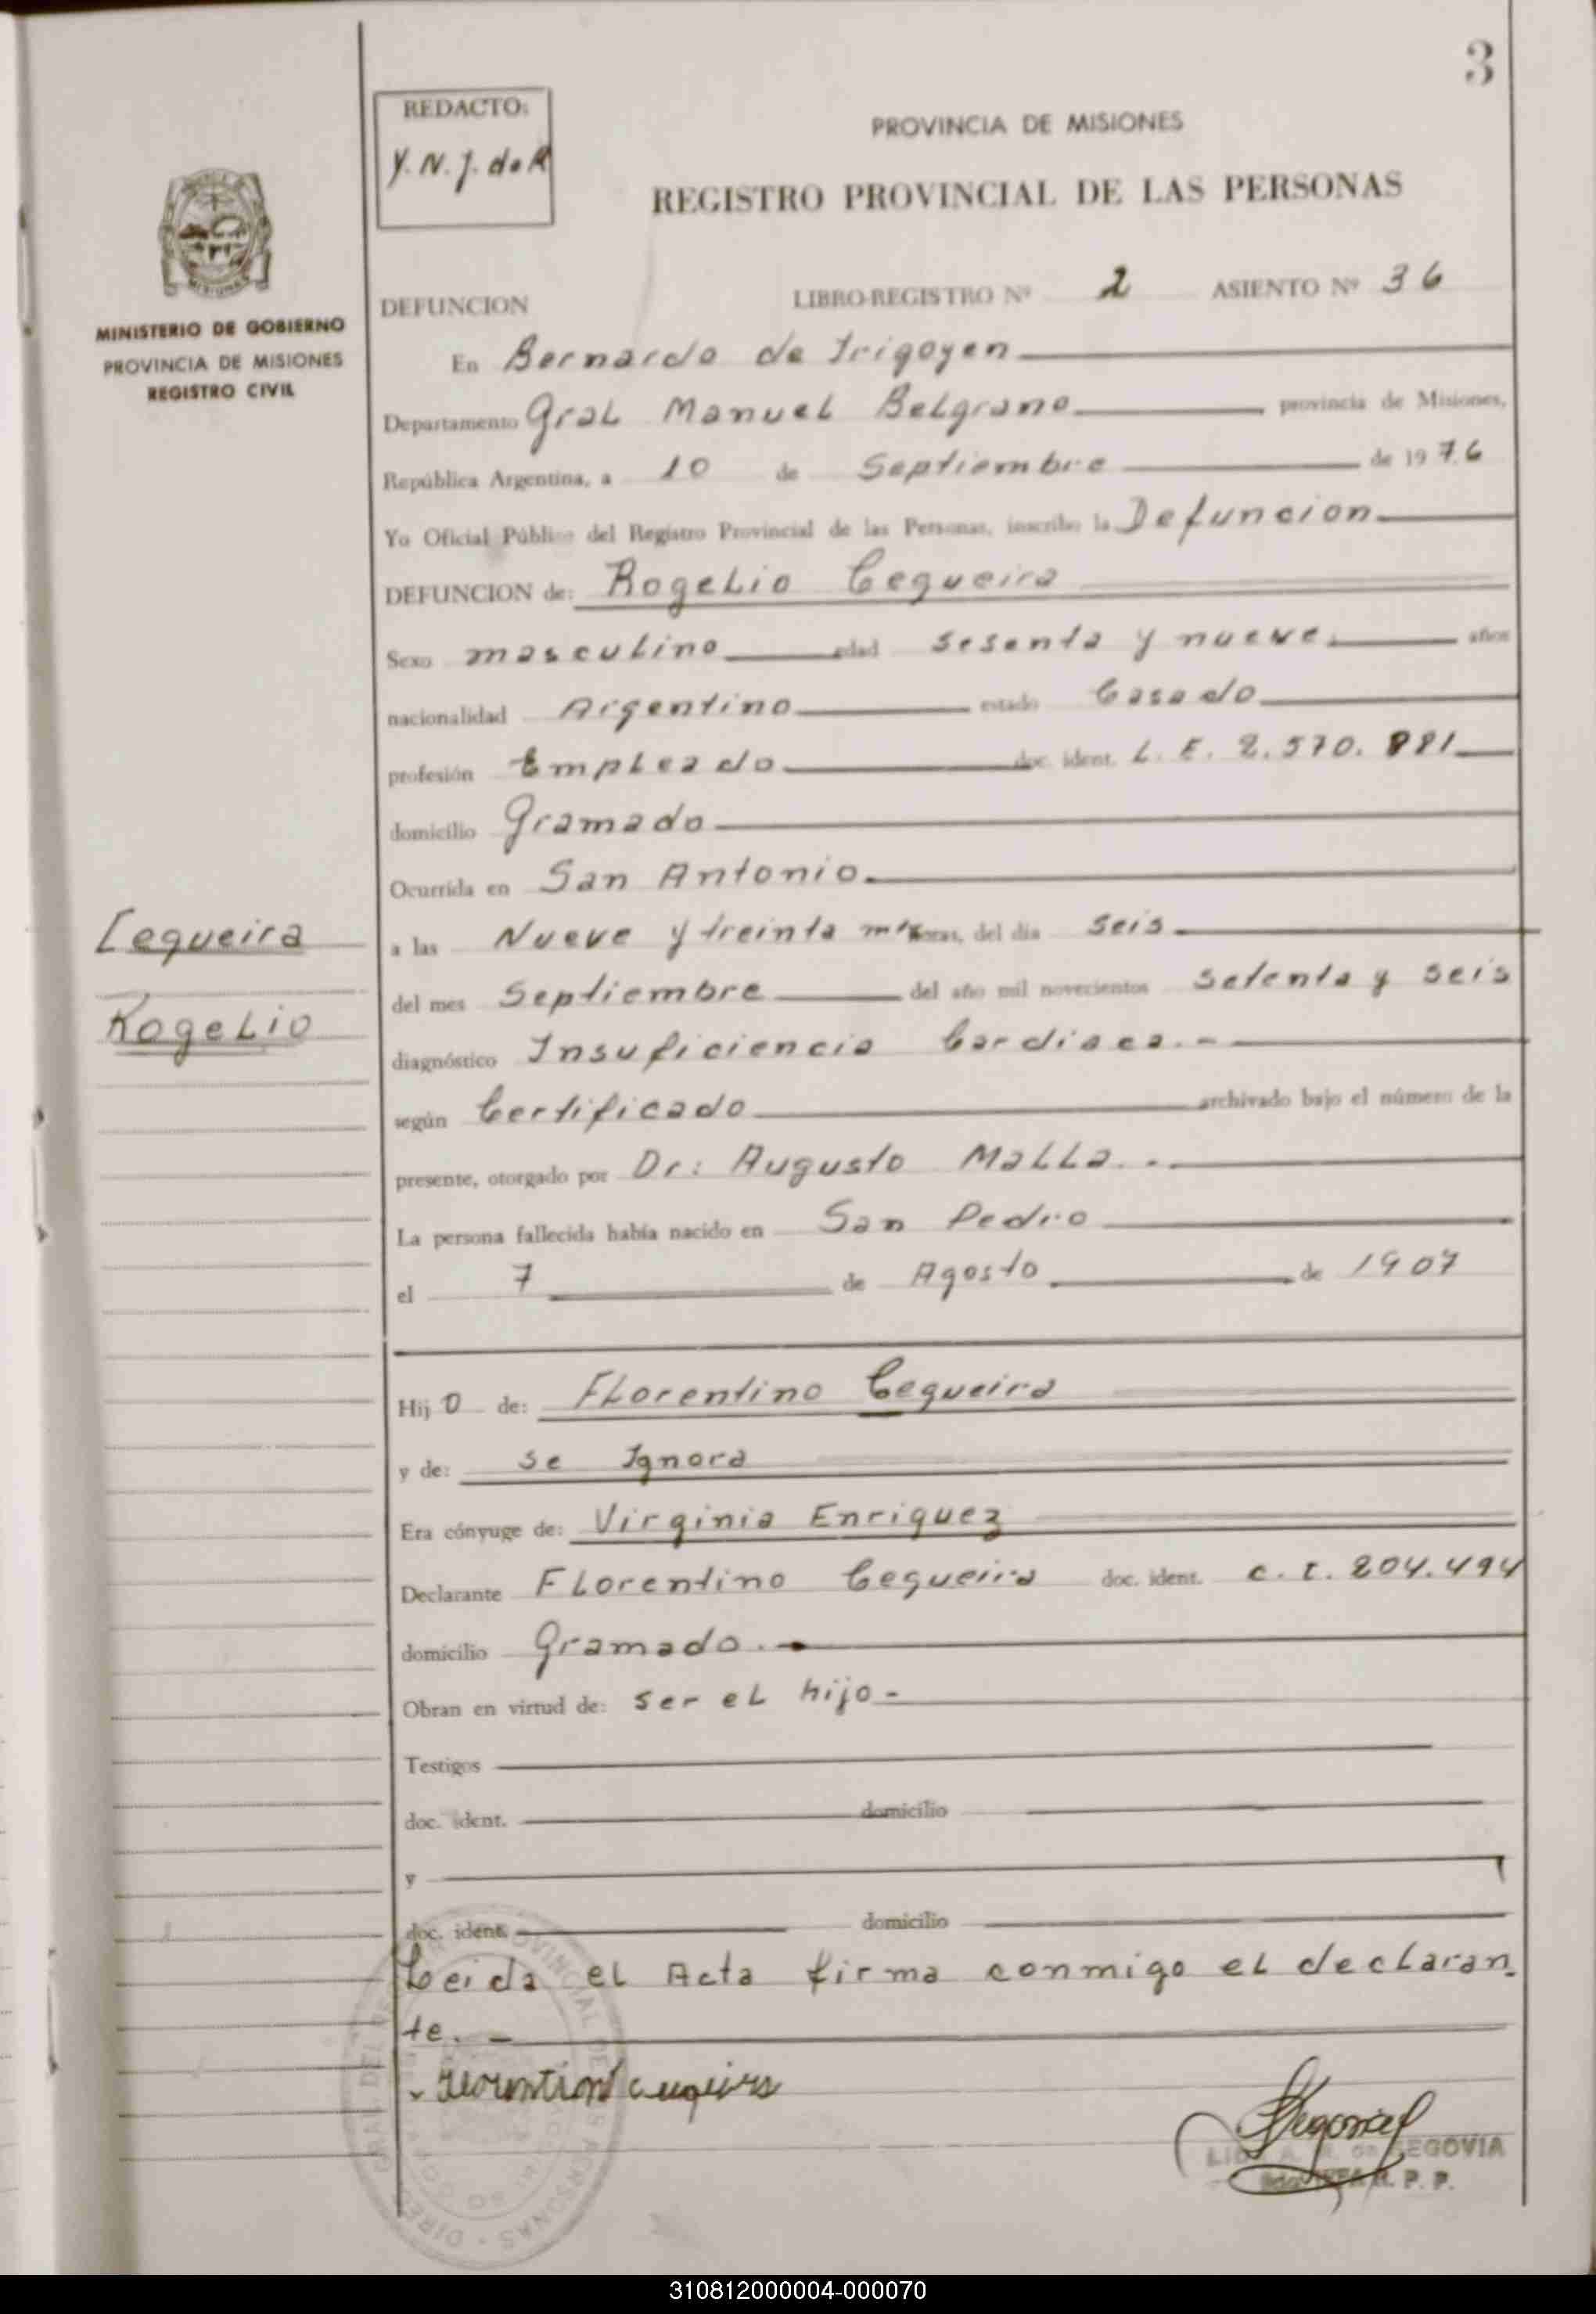 3
REDACTO:
Y. N. J. de R
PROVINCIA DE MISIONES
REGISTRO PROVINCIAL DE LAS PERSONAS
MINISTERIO DE GOBIERNO
PROVINCIA DE MISIONES
REGISTRO CIVIL
DEFUNCION LIBRO-REGISTRO Nº 2 ASIENTO Nº 36
En Bernardo de Irigoyen
Departamento Gral Manuel Belgrano provincia de Misiones,
República Argentina, a 10 de Septiembre de 1976
Yo Oficial Público del Registro Provincial de las Personas, inscribo la Defuncion
DEFUNCION de: Rogelio Cequeira
Sexo masculino edad sesenta y nueve años
nacionalidad Argentino estado Casado
profesión Empleado doc. ident. L. E. 2.570.881
domicilio Gramado
Ocurrida en San Antonio
Cequeira
a las Nueve y treinta mts horas, del día seis
del mes Septiembre del año mil novecientos setenta y seis
Rogelio
diagnóstico Insuficiencia Cardiaca.-
según Certificado archivado bajo el número de la
presente, otorgado por Dr: Augusto Malla.-
La persona fallecida había nacido en San Pedro
el 7 de Agosto de 1907
Hijo de: Florentino Cequeira
y de: se Ignora
Era cónyuge de: Virginia Enriquez
Declarante Florentino Cequeira doc. ident. C. I. 204.494
domicilio Gramado.-
Obran en virtud de: ser el hijo-
Testigos
doc. ident. domicilio
y
doc. ident. domicilio
Leida el Acta firma conmigo el declaran-
te.-
Florentino Cequeira
SEGOVIA
R. P. P.
310812000004-000070